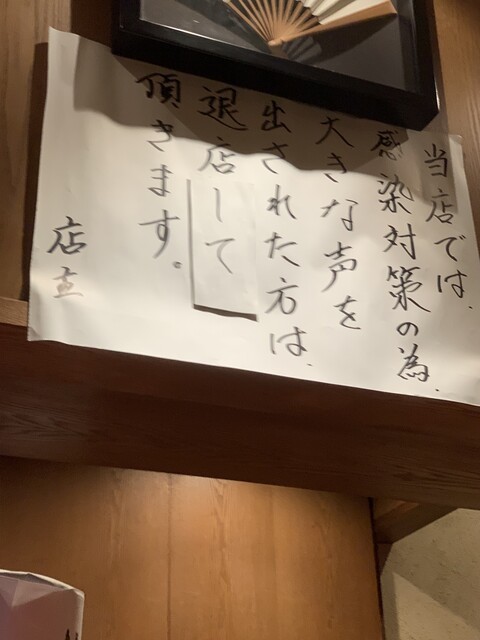 当店では、
感染対策の為、
大きな声を
出された方は、
退店して
頂きます。
店主